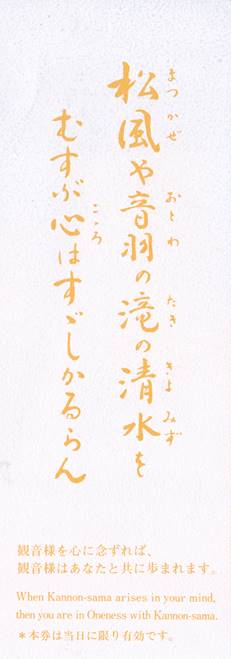 松風や音羽の滝の清水を
まつかぜ おとわ たき きよみず
むすぶ心はすゞしかるらん
こころ
観音様を心に念ずれば、
観音様はあなたと共に歩まれます。
When Kannon-sama arises in your mind,
then you are in Oneness with Kannon-sama.
＊本券は当日に限り有効です。